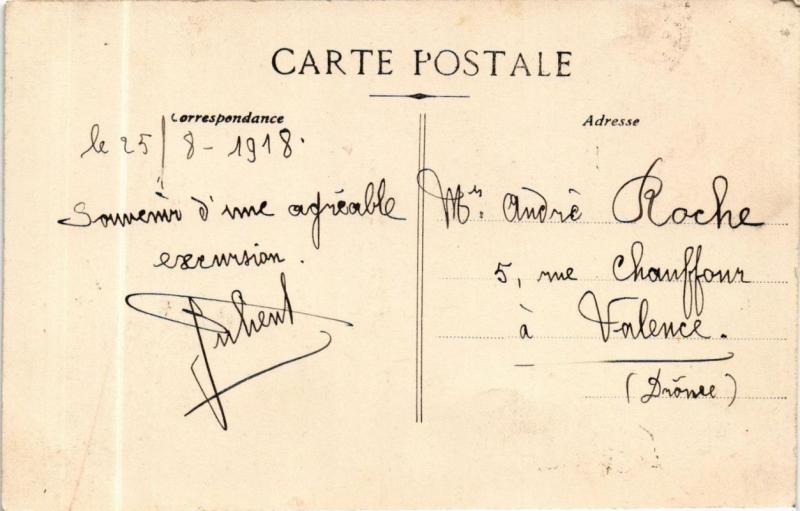 CARTE POSTALE
Correspondance
le 25/8-1918.
Souvenir d'une agréable
excursion.
Adresse
Mr. André Roche
5, rue Chauffour
à Valence.
(Drôme)